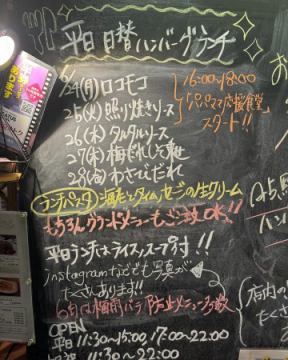 平日 日替ハンバーグランチ
6/24(月)ロコモコ
25(火)照り焼きソース
26(水)タルタルソース
27(木)梅だれしそ
28(金)わさびだれ
16:00~18:00
「パパママ応援食堂」
スタート!!
ランチパスタ 海老とタイムセージの生クリーム
もちろんグランドメニューもご注文OK!!
平日ランチはライス,スープ付!!
Instagramなどでも写真が
たくさんあります!!
6月は梅雨バテ防止メニュー多数
OPEN
平日 11:30~15:00, 17:00~22:00
11:30~22:00
店内の
たくさ